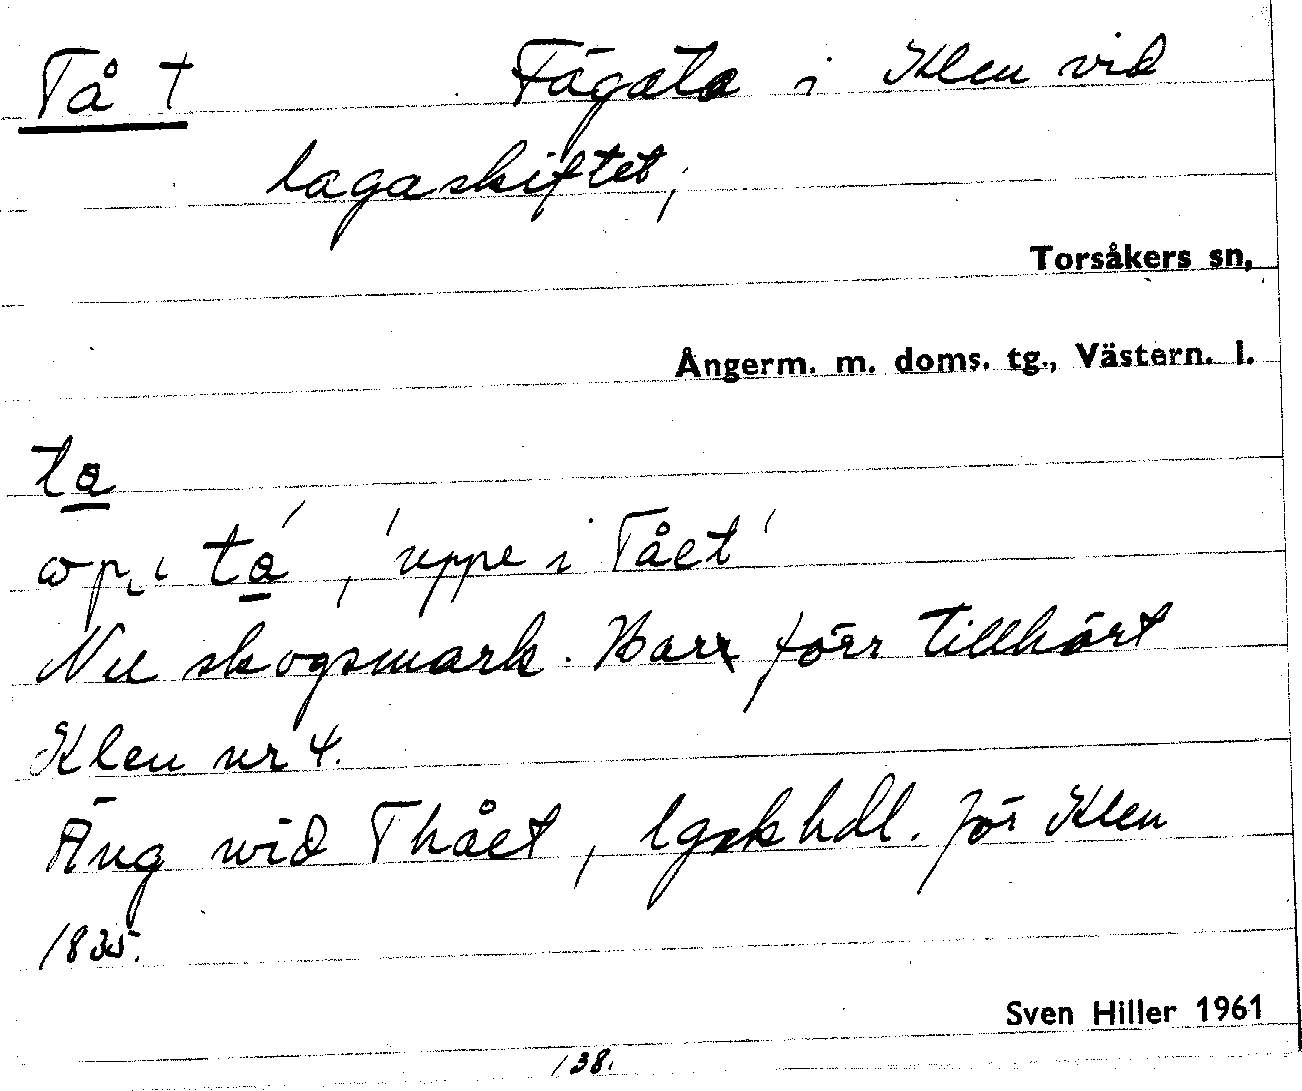 Tå † Fägata i Klen vid
lagaskiftet,
Torsåkers sn,
Ångerm. m. doms. tg., Västern. l.
ta
i ta, 'uppe i Tået'
Nu skogsmark. Har förr tillhört
Klen nr 4.
Äng wid Thået, lgskhdl. för Klen
1835.
Sven Hiller 1961
138.